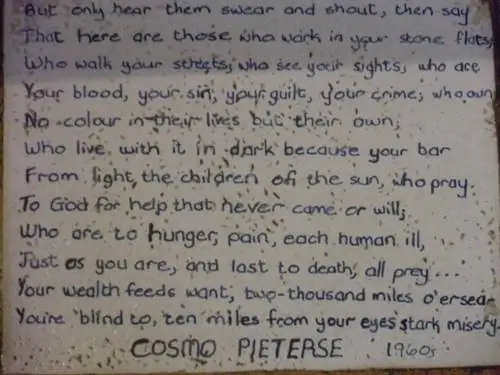 But only hear them swear and shout, then say
That here are those who work in your stone flats,
Who walk your streets, who see your sights, who are
Your blood, your sin, your guilt, your crime; who own
No colour in their lives but their own;
Who live with it in dark because your bar
From light, the children of the sun, who pray.
To God for help that never came or will;
Who are to hunger, pain, each human ill,
Just as you are, and last to death, all prey...
Your wealth feeds want, two-thousand miles o'ersea
You're blind to, ten miles from your eyes stark misery.
COSMO PIETERSE 1960s